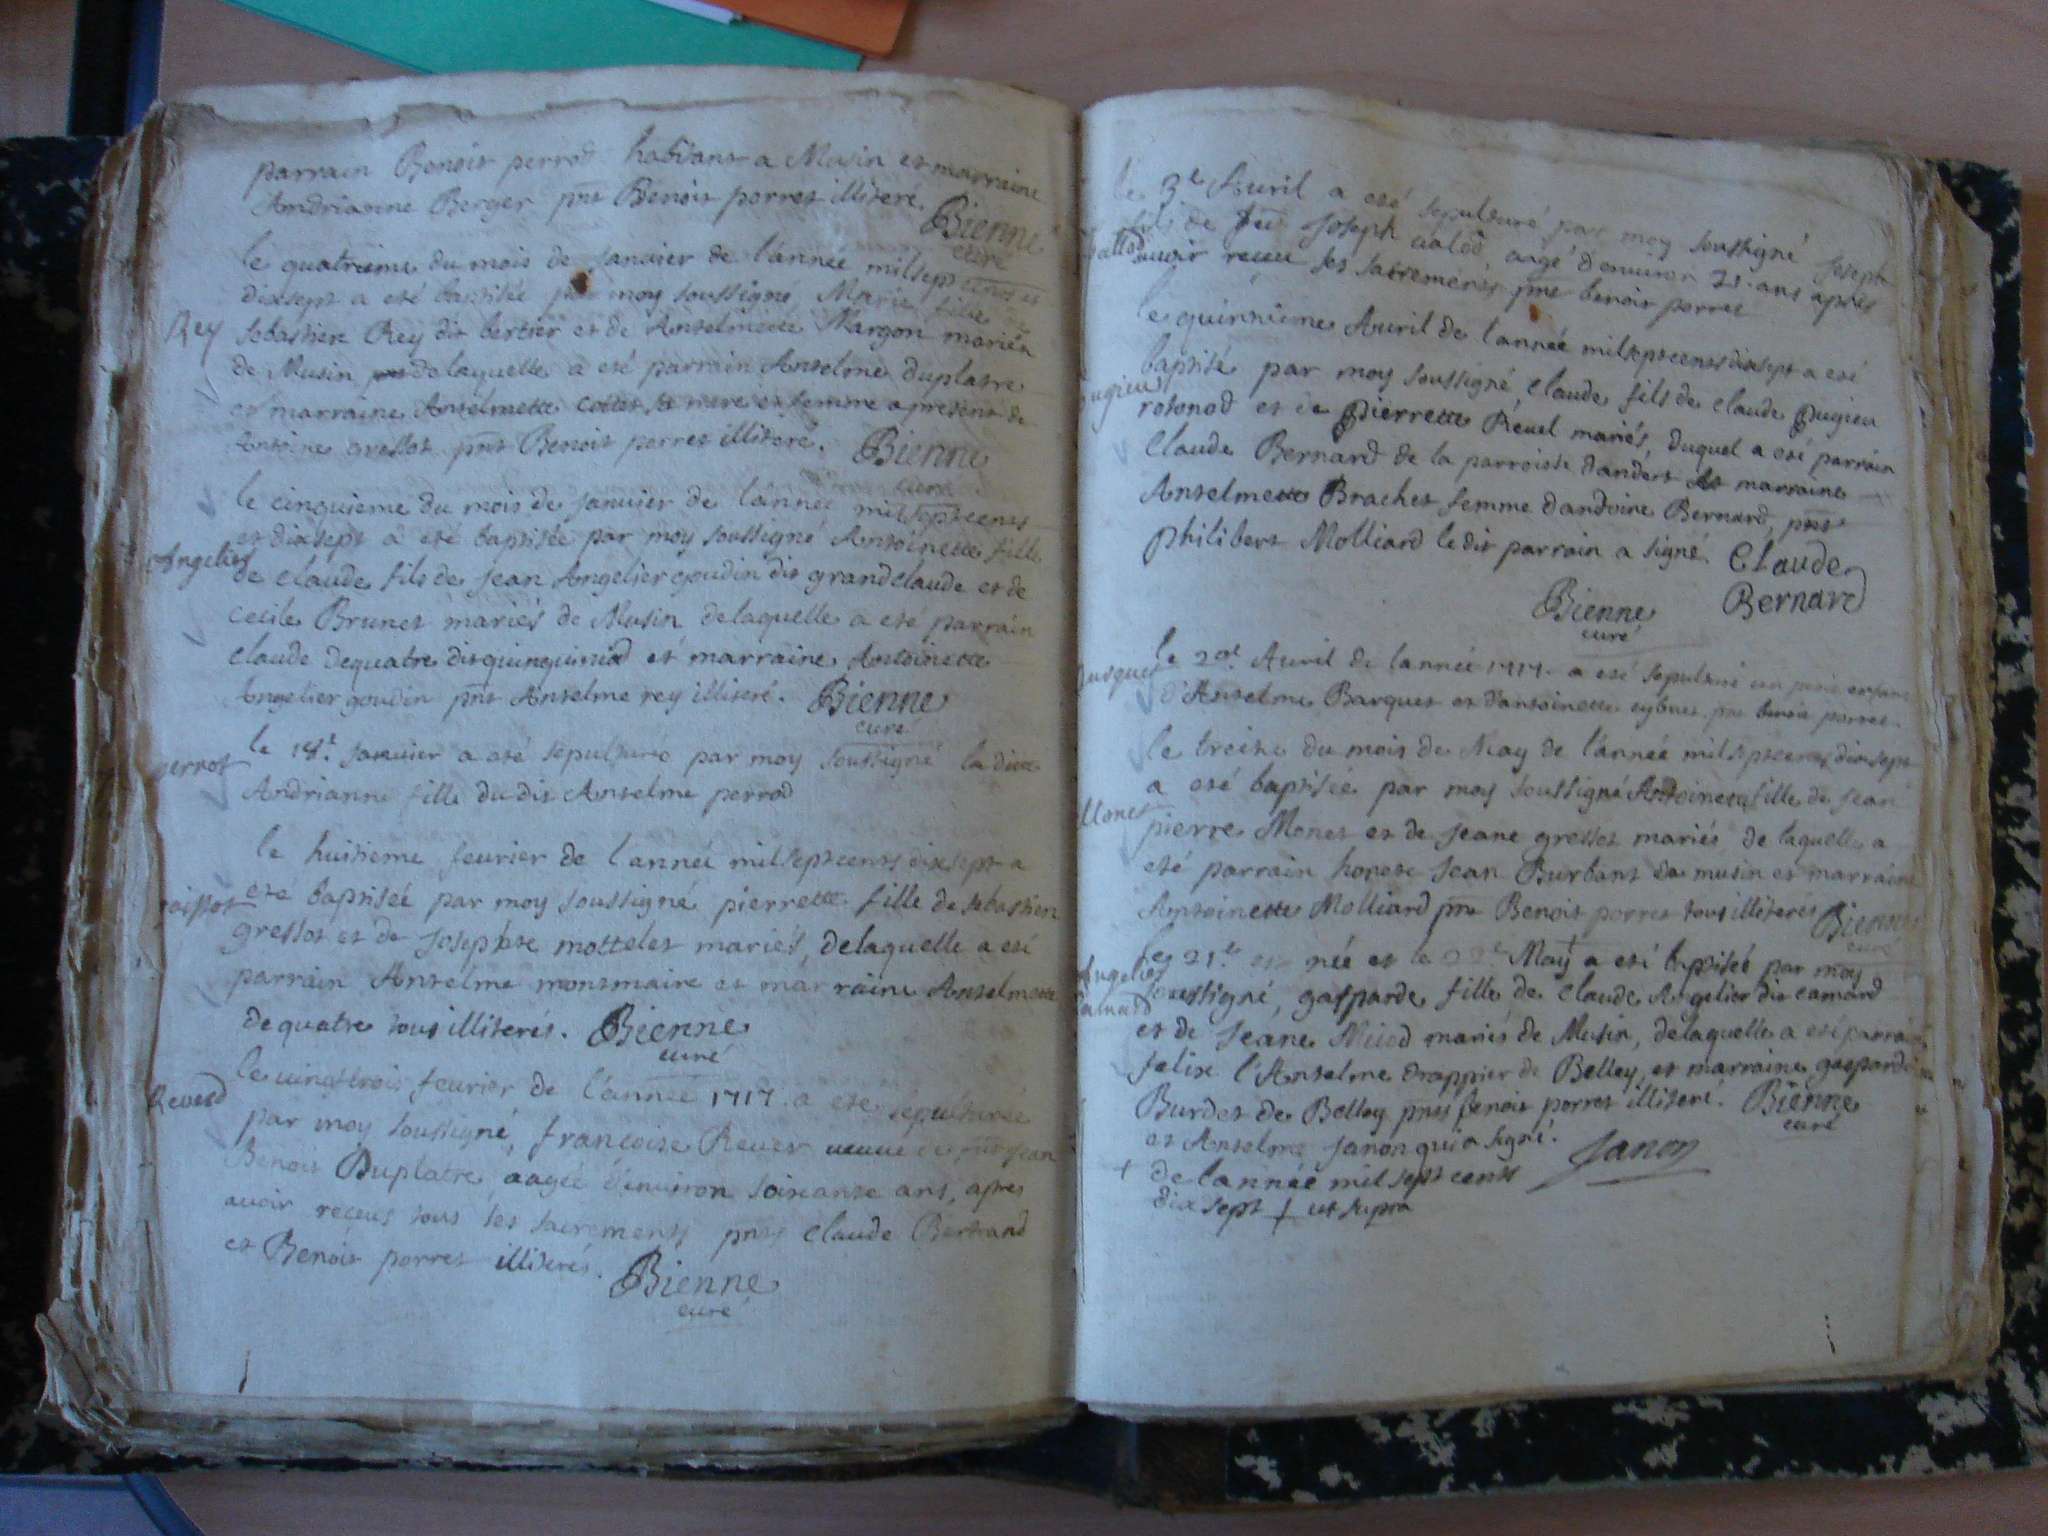 parrain Benoit perrod habitant a Musin et marraine
Andrianne Berger pnt Benoit porret illiteré. Bienne
curé
le quatrieme du mois de Janvier de l'année milseptcents et
dixsept a eté baptisée par moy soussigné Marie fille
Rey
sebastien Rey dit bertier et de Anselmette Margon mariés
de Musin delaquelle a eté parrain Anselme duplatre
et marraine Anselmette sa mere et femme apresent de
Antoine gressot pnt Benoit porret illiteré. Bienne
curé
le cinquieme du mois de Janvier de l'année milseptcents
et dixsept a eté baptisée par moy soussigné Antoinette fille
Angelier
de Claude fils de Jean Angelier goudin dit grandclaude et de
cecile Brunet mariés de Musin delaquelle a eté parrain
claude dequatre dit et marraine Antoinette
Angelier goudin pnt Anselme rey illiteré. Bienne
curé
le 18e. Janvier a eté sepulturé par moy soussigné la dite
perrot
Andrianne fille dudit Anselme perrod
le huitieme feurier de l'année milseptcents dixsept a
eté baptiseé par moy soussigné pierrette fille de sebastien
gressot et de Josephte mottelet mariés, delaquelle a eté
parrain Anselme montmaire et marraine Anselmette
dequatre tous illiterés. Bienne
curé
le uingttrois feurier de l'année 1717. a eté sepulturée
Reverd
par moy soussigné, francoise Reuer ueuue
Benoit Duplatre aagée d'enuiron soixante ans, apres
auoir receus tous ses sacrements pnts Claude Bertrand
et Benoit porret illiterés. Bienne
curé
le 3e Auril a eté sepulturé par moy soussigné Joseph
fils de feu Joseph ualod, aagé d'enuiron 21. ans apres
auoir receu ses sacrements pnt benoit porret
le quinzieme Auril de l'année milseptcentsdixsept a eté
baptisé par moy soussigné, Claude fils de Claude Pugieu
Pugieu
rotonod et de Pierrette Reuel mariés, duquel a eté parrain
Claude Bernard de la parroisse dandert et marraine
Anselmette Brachet femme dantoine Bernard, pnt
philibert Molliard ledit parrain a signé. Claude
Bernard
Bienne
curé
le Auril de lannée 1717. a eté sepulturé un petit enfant
d'Anselme Barquet et d'antoinette pnt benoit porret.
le treize du mois de May de l'année milseptcents dixsept
a eté baptisée par moy soussigné Antoinette fille de Jean
Monet
pierre Monet et de Jeane gressot mariés de laquelle a
eté parrain honete Jean Burbant de musin et marraine
Antoinette Molliard pnt Benoit porret tous illiterés Bienne
curé
le 21e est née et le 22e May † a eté baptisée par moy
Angelier
soussigné, gasparde fille de Claude Angelier dit camard
Camard
et de Jeane mariés de Musin, delaquelle a eté parrain
felix l'Anselme drappier de Belley, et marraine gasparde
Burdet de Belley pnts benoit porret illiteré. Bienne
curé
et Anselme Janon qui a signé. Janon
† de lannée mil sept cents
dix sept † ut supra